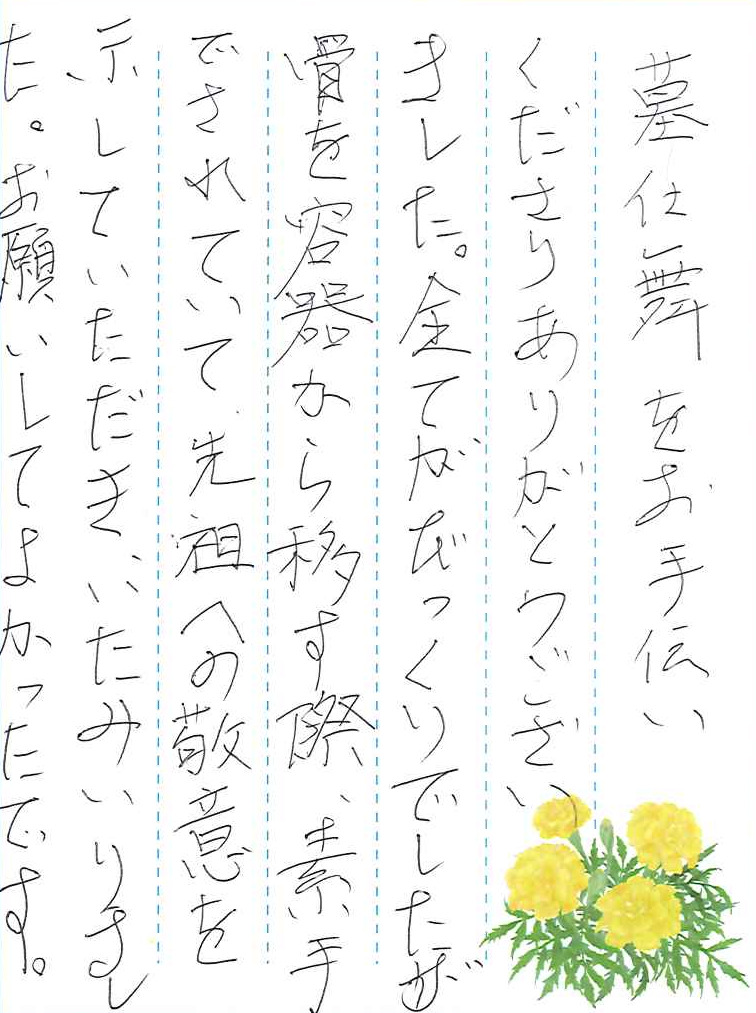 墓仕舞をお手伝い
くださりありがとうござい
ました。全てがびっくりでしたが
骨を容器から移す際、素手
でされていて、先祖への敬意を
示していただきいたみいりまし
た。お願いしてよかったです。